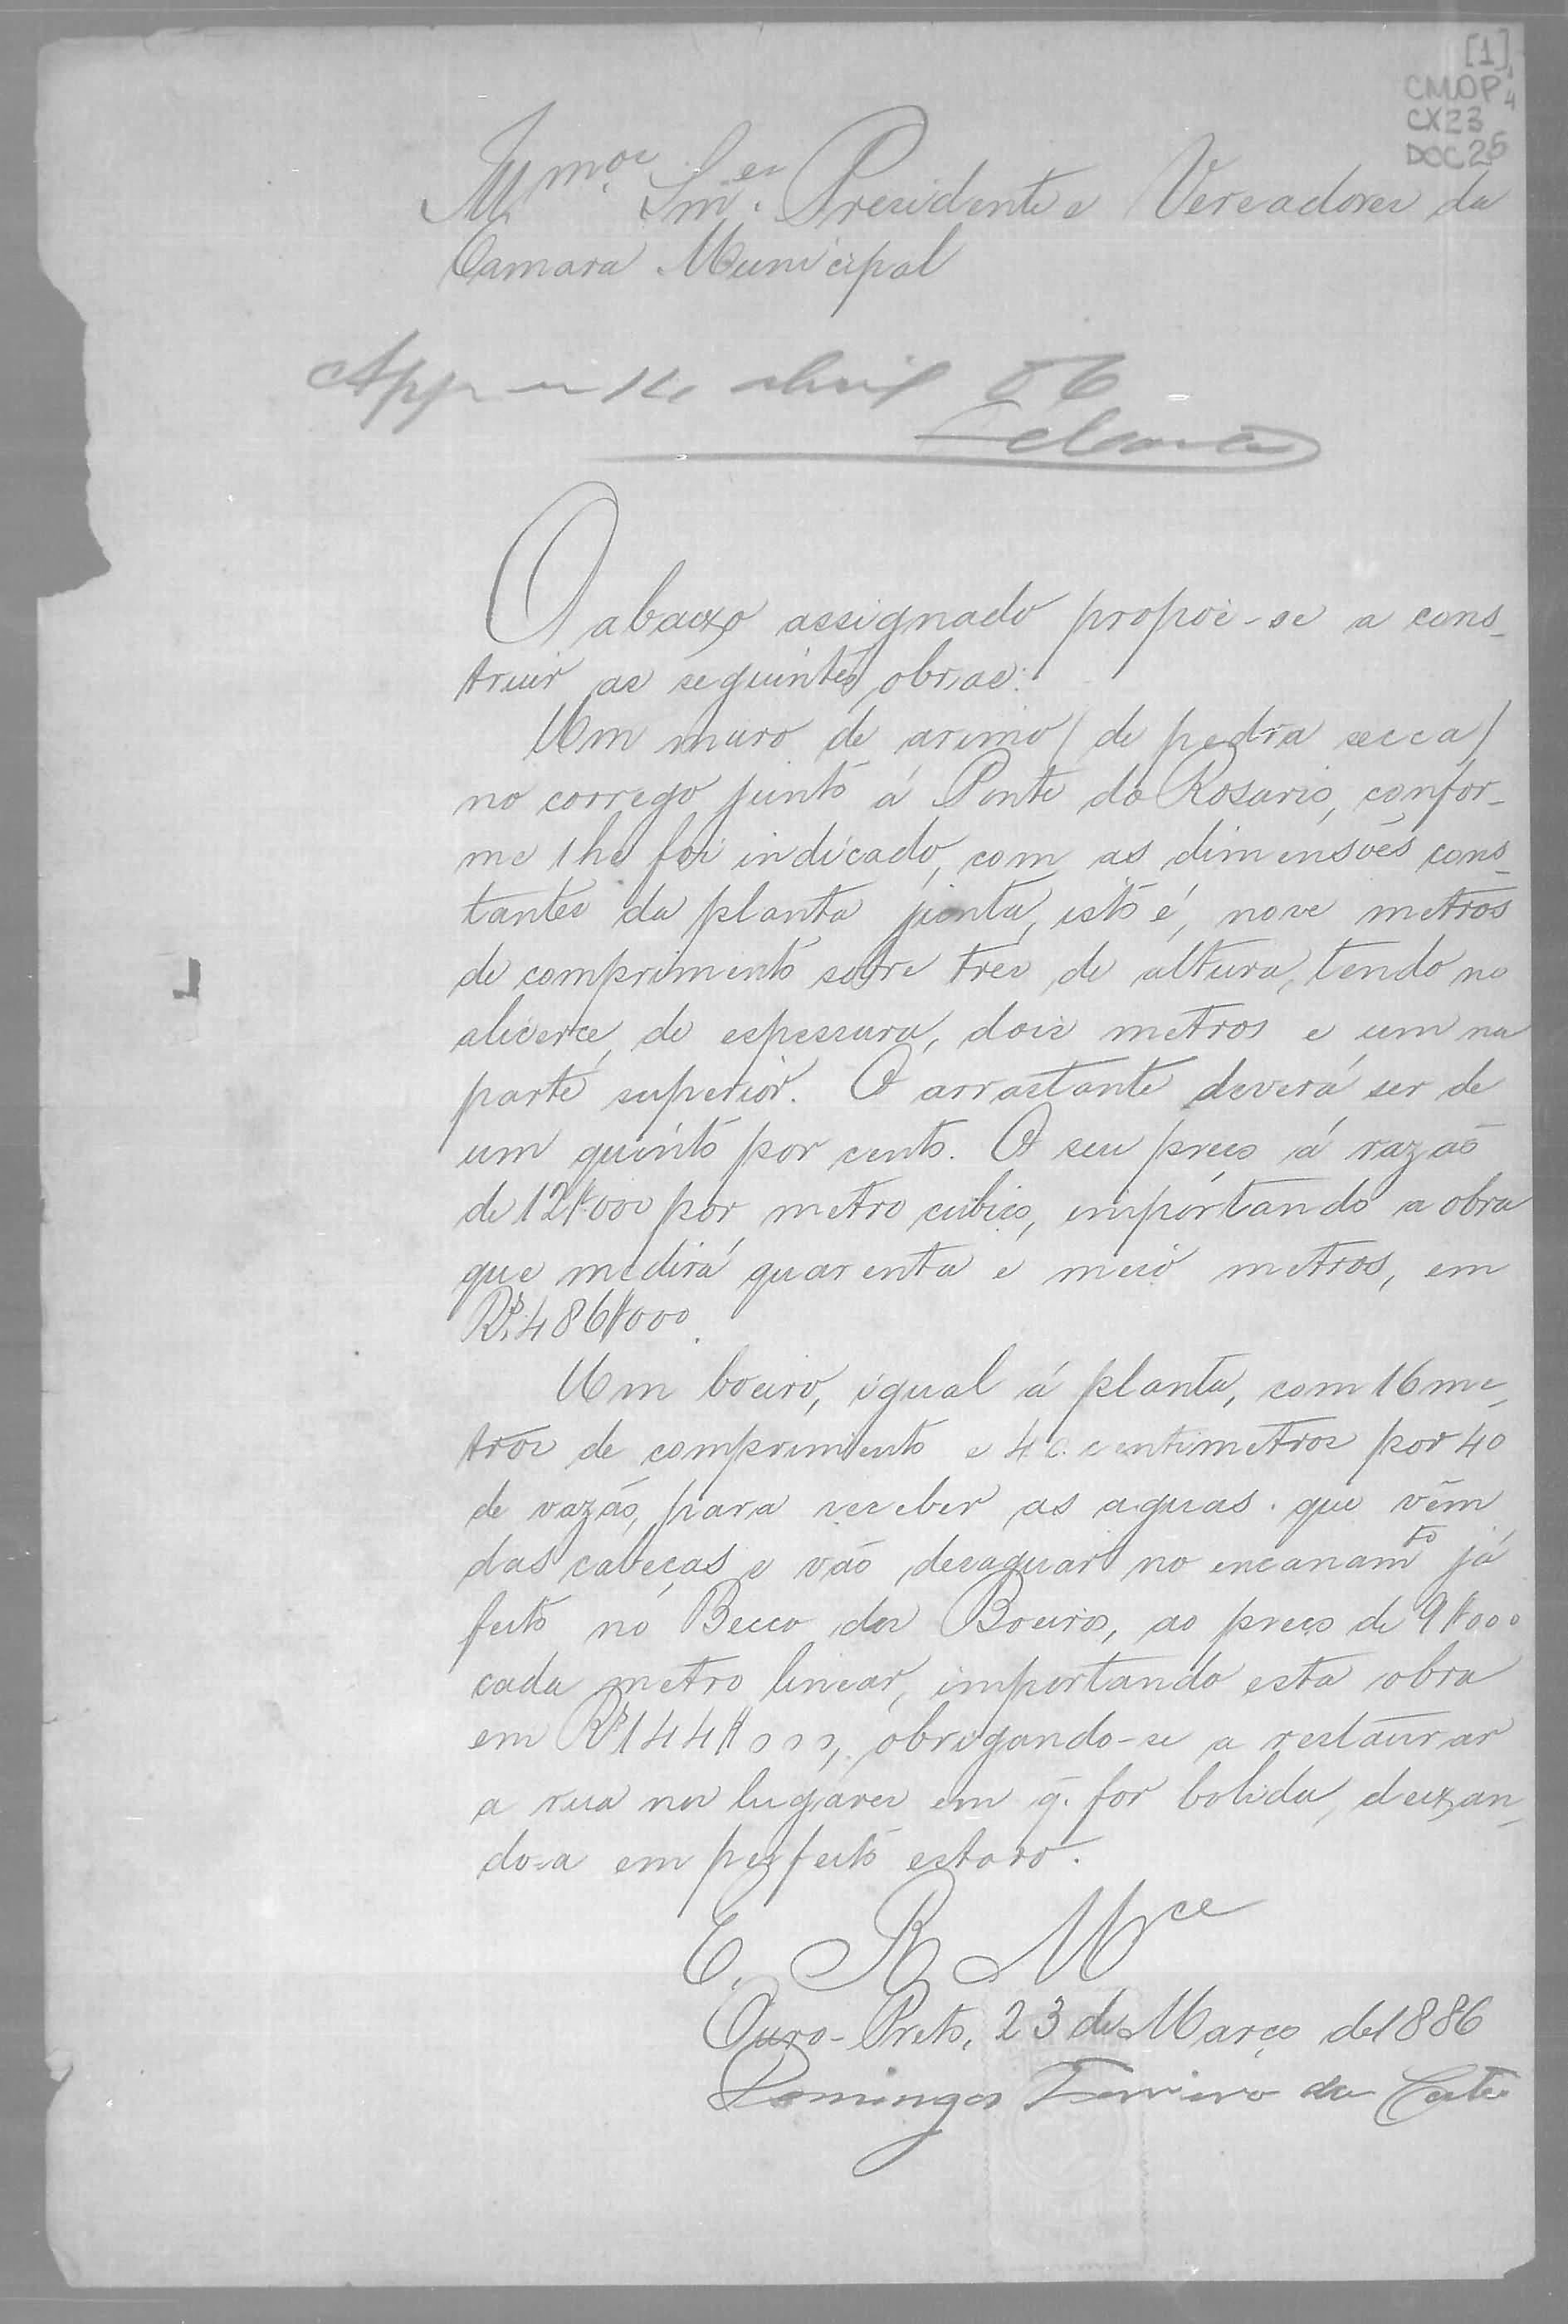 [1]
CMOP
CX23
DOC 26
Illmos. Snres. Presidente e Vereadores da
Camara Municipal
App abril 86
O abaixo assignado propoe-se a cons-
truir as seguintes obras:
Um muro de arrimo (de pedra secca)
no corrego junto á Ponte do Rosario, confor-
me lhe foi indicado, com as dimensões cons-
tantes da planta junta, isto é, nove metros
de comprimento sobre tres de altura, tendo no
alicerce, de espessura, dois metros e um na
parte superior. O arrastante deverá ser de
um quinto por cento. O seu preço á razão
de 12$000 por metro cubico, importando a obra
que medirá quarenta e meio metros, em
Rs. 486$000.
Um boeiro, igual á planta, com 16 me-
tros de comprimento e 40 centimetros por 40
de vazão, para receber as aguas que vêm
das cabeças e vão desaguar no encanamto já
feito no Becco dos Boeiros, ao preço de 9$000
cada metro linear, importando esta obra
em Rs 144$000, obrigando-se a restaurar
a rua nos lugares em q. for bolida, deixan-
do-a em perfeito estado.
E. R. Mce
Ouro-Preto, 23 de Março de 1886
Domingos Ferreiro da Costa